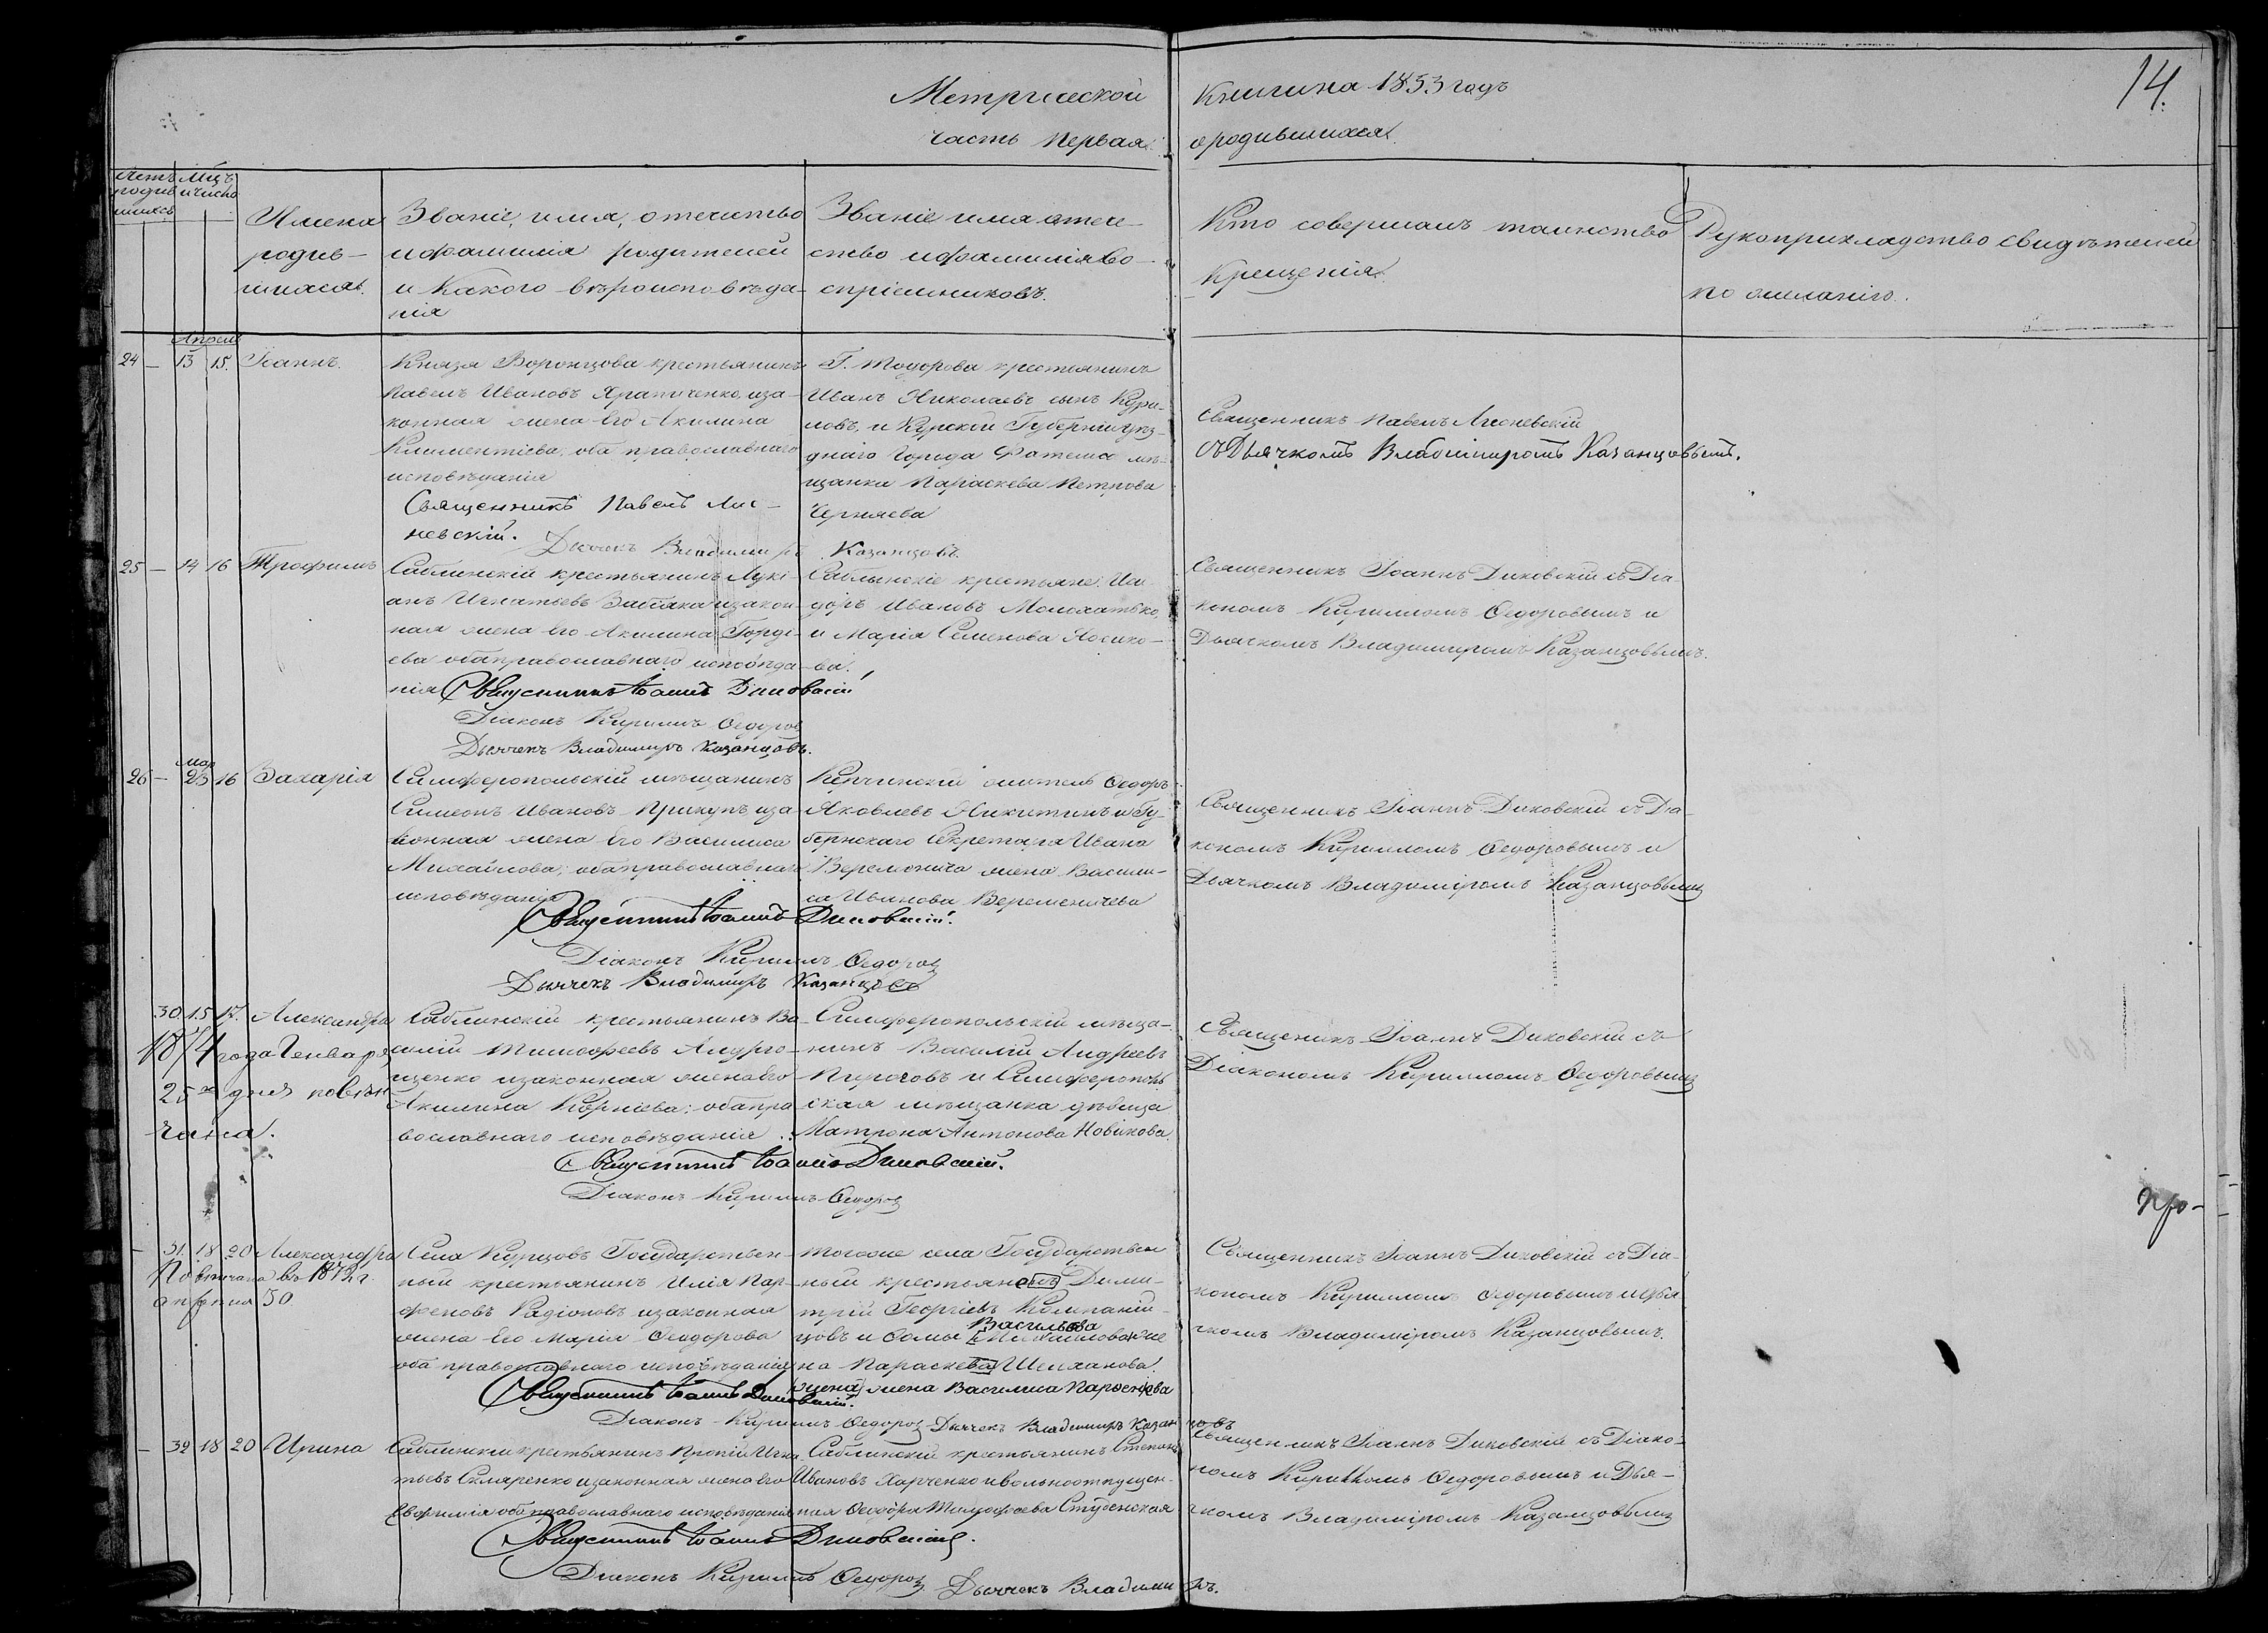 Метрической книги на 1853 годъ
14.
часть первая о родившихся.
Лѣтъ родившихся
Мцъ и число
Имена родив-
шихся.
Званіе, имя, отечество
и фамилія родителей
и какого вѣроисповѣда-
нія
Званіе имя отече-
ство и фамилія во-
спріемниковъ.
Кто совершалъ таинство
крещенія.
Рукоприкладство свидѣтелей
по желанію.
Апрель
24 — 13 15. Іоаннъ.
Князя Воронцова крестьянинъ
Павелъ Ивановъ Храпиченко, и за-
конная жена его Акилина
Климентіева, оба православнаго
исповѣданія
Священникъ Павелъ Лис-
невскій.
Дьячекъ Владимиръ Казанцовъ.
Г. Тодорова крестьянинъ
Иванъ Николаевъ сынъ Кури-
ловъ, и Курской Губерніи уѣз-
днаго города Фатежа мѣ-
щанка Параскева Петрова
Черняева
Священникъ Павелъ Лисневскій
съ Дьячкомъ Владимиромъ Казанцовымъ.
25 — 14 16 Трофимъ
Саблинскій крестьянинъ Лукі-
анъ Игнатьевъ Забіяка и закон-
ная жена его Акилина Горді-
ева оба православнаго исповѣда-
нія Священникъ Іоаннъ Диковскій
Діаконъ Кириллъ Ѳедоровъ
Дьячекъ Владимиръ Казанцовъ.
Саблынскіе крестьяне: Иси-
доръ Ивановъ Молохатько,
и Марія Семенова Носико-
ва.
Священникъ Іоаннъ Диковскій съ Діа-
кономъ Кирилломъ Ѳедоровымъ и
Дьячкомъ Владимиромъ Казанцовымъ.
Мар
26 — 23 16 Захарія
Симферопольскій мѣщанинъ
Симеонъ Ивановъ Прикупъ и за-
конная жена его Василиса
Михайлова; оба православнаго
исповѣданія
Священникъ Іоаннъ Диковскій.
Діаконъ Кириллъ Ѳедоровъ
Дьячекъ Владимиръ Казанцовъ
Керчинскій житель Ѳедоръ
Яковлевъ Никитинъ и Гу-
бернскаго Секретаря Ивана
Веремѣнича жена Васили-
са Иванова Веременичева
Священникъ Іоаннъ Диковскій съ Діа-
кономъ Кирилломъ Ѳедоровымъ и
Дьячкомъ Владиміромъ Казанцовымъ
30. 15 17. Александра
1874 года Генваря
25го дня повѣн-
чана.
Саблинскій крестьянинъ Ва-
силій Тимофеевъ
и законная жена его
Акилина Корніева; оба пра-
вославнаго исповѣданія
Священникъ Іоаннъ Диковскій.
Діаконъ Кириллъ Ѳедоровъ
Симферопольскій мѣща-
нинъ Василій Андреевъ
Пироговъ и Симферополь-
ская мѣщанка дѣвица
Матрона Антонова Новикова.
Священникъ Іоаннъ Диковскій съ
Діакономъ Кирилломъ Ѳедоровымъ
про-
— 31. 18 20 Александра
Повѣнчана въ 1872 г.
апрѣля 30.
Села Курцовъ Государствен-
ный крестьянинъ Илія Пар-
феновъ Радіоновъ и законная
жена его Марія Ѳеодорова
оба православнаго исповѣданія
Священникъ Іоаннъ Диковскій.
Діаконъ Кириллъ Ѳедоровъ Дьячекъ Владимиръ Казанцовъ
того же села Государствен
ный крестьянинъ Дими-
трій Георгіевъ Компаній-
Васильева
цовъ и Ѳомы Михайлова же
на Параскева Шелханова.
жена Василиса Парѳенова
Священникъ Іоаннъ Диковскій съ Діа-
кономъ Кирилломъ Ѳедоровымъ и Дья-
чкомъ Владиміромъ Казанцовымъ.
— 32 18 20 Ирина
Саблинскій крестьянинъ Прокій Игна-
тьевъ Скляренко и законная жена его
Евфимія оба православнаго исповѣданія
Священникъ Іоаннъ Диковскій.
Діаконъ Кириллъ Ѳедоровъ Дьячекъ Владимиръ.
Саблинскій крестьянинъ Степанъ
Ивановъ Харченко и вольноотпущен-
ная Ѳеодора Тимофеева Студенская
Священникъ Іоаннъ Диковскій съ Діако-
номъ Кирилломъ Ѳедоровымъ и Дья-
чкомъ Владиміромъ Казанцовымъ